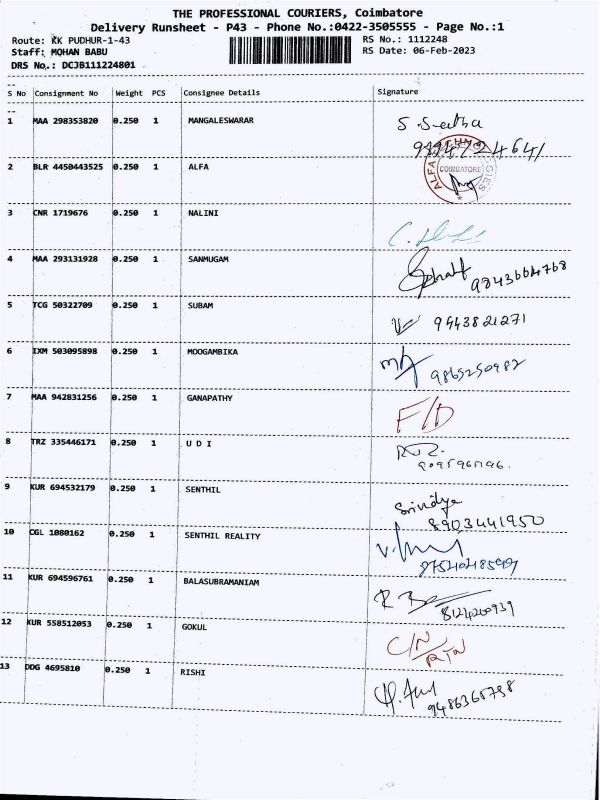 THE PROFESSIONAL COURIERS, Coimbatore
Delivery Runsheet - P43 - Phone No.:0422-3505555 - Page No.:1
Route: KK PUDHUR-1-43 RS No.: 1112248
Staff: MOHAN BABU RS Date: 06-Feb-2023
DRS No.: DCJB111224801
S No Consignment No Weight PCS Consignee Details Signature
1 MAA 298353820 0.250 1 MANGALESWARAR S. Seetha
9894724641
2 BLR 4450443525 0.250 1 ALFA COIMBATORE
3 CNR 1719676 0.250 1 NALINI
4 MAA 293131928 0.250 1 SANMUGAM 9843664768
5 TCG 50322709 0.250 1 SUBAM 9443821271
6 IXM 503095898 0.250 1 MOOGAMBIKA 9865250982
7 MAA 942831256 0.250 1 GANAPATHY F/D
8 TRZ 335446171 0.250 1 U D I
9 KUR 694532179 0.250 1 SENTHIL Srividya
8903441950
10 CGL 1080162 0.250 1 SENTHIL REALITY
11 KUR 694596761 0.250 1 BALASUBRAMANIAM
8124200939
12 KUR 558512053 0.250 1 GOKUL C/N
RTN
13 DDG 4695810 0.250 1 RISHI
9486365798